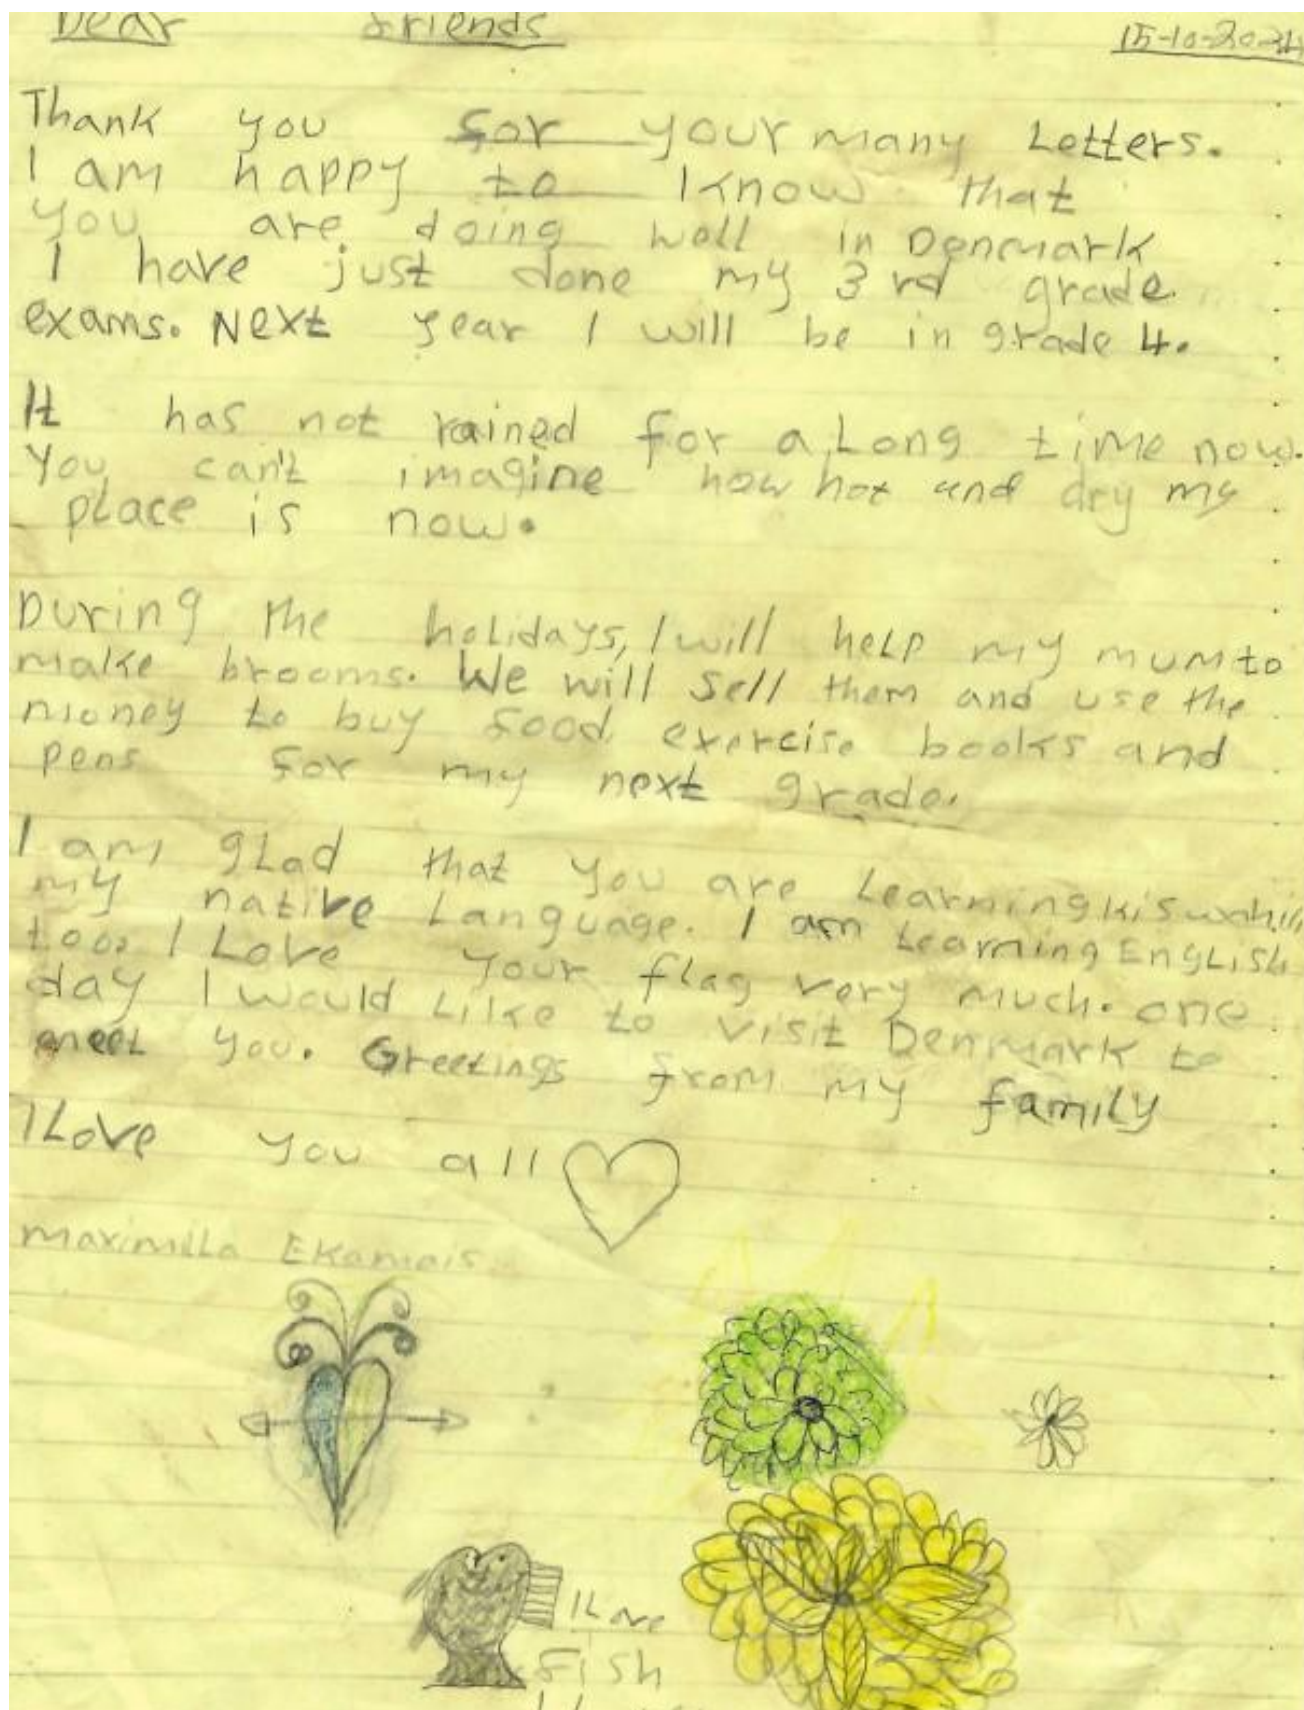 Dear friends
15-10-2024
Thank you for your many Letters.
I am happy to know that
you are doing well in Denmark
I have just done my 3rd grade
exams. Next year I will be in grade 4.
It has not rained for a Long time now.
You can't imagine how hot and dry my
place is now.
During the holidays, I will help my mum to
make brooms. We will sell them and use the
money to buy food, exercise books and
pens for my next grade.
I am glad that you are Learning kiswahili
my native Language. I am Learning English
too. I Love your flag very much. one
day I would Like to visit Denmark to
meet you. Greetings from my family
I Love you all
Maximilla Ekamais
I Love
fish